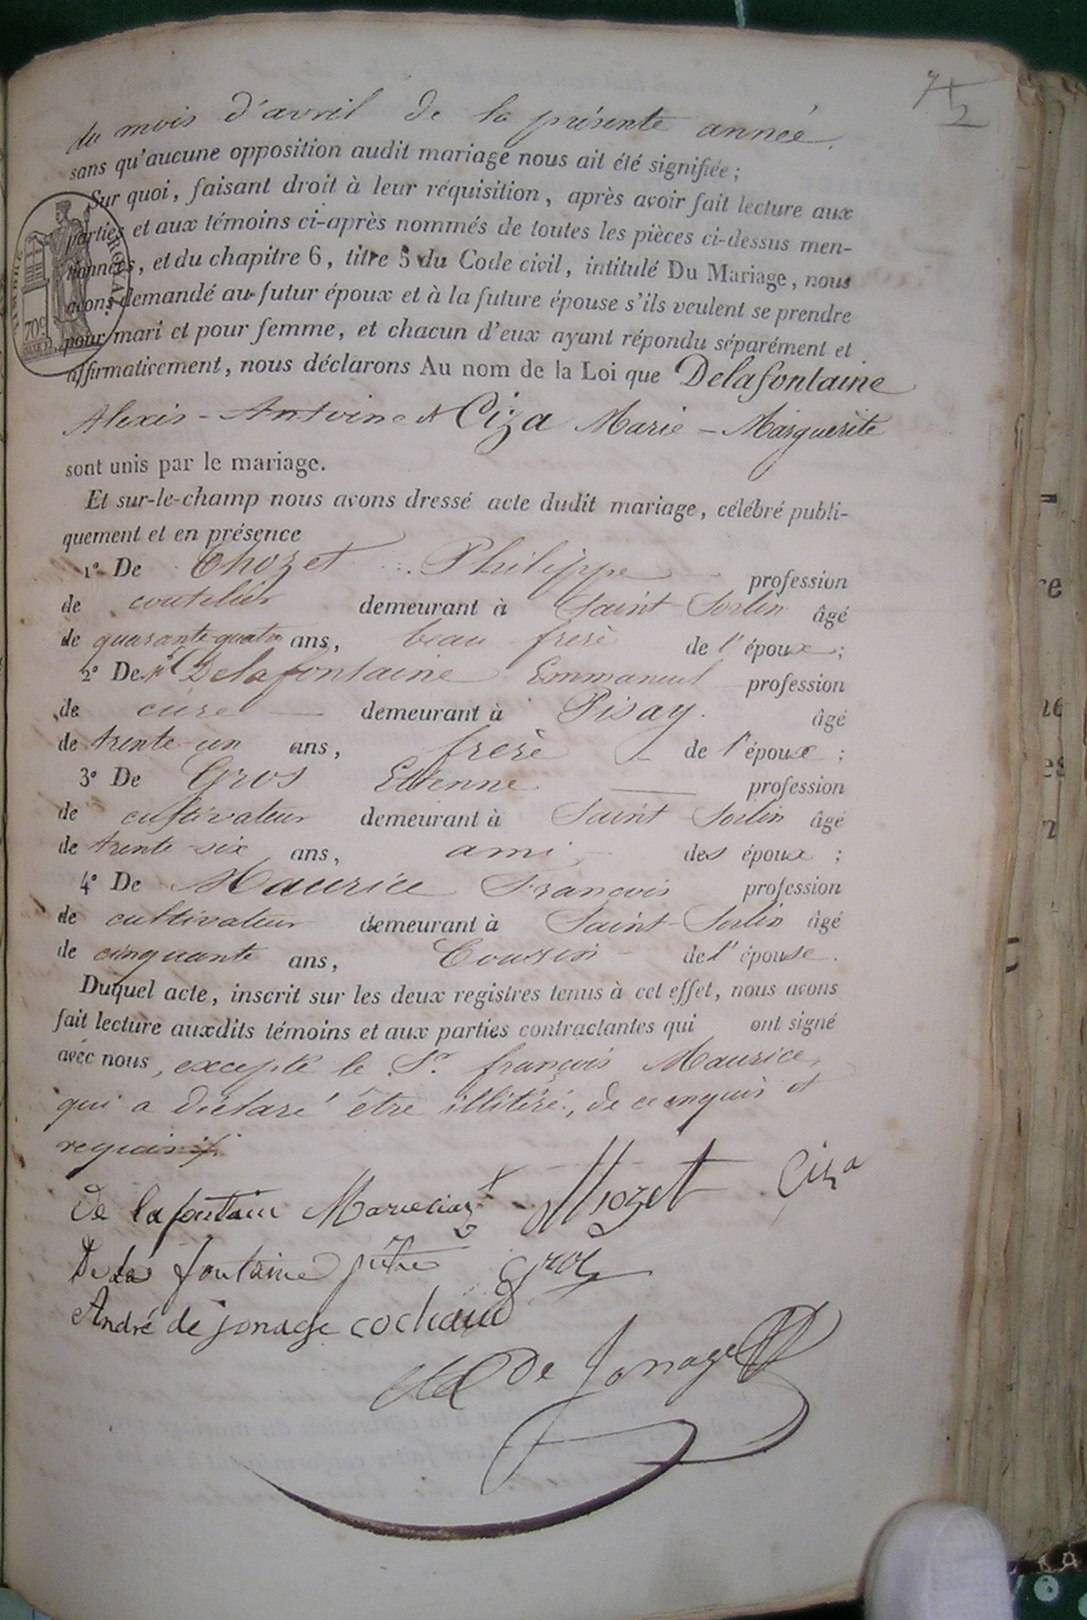 7
2
du mois d'avril de la présente année.
sans qu'aucune opposition audit mariage nous ait été signifiée;
Sur quoi, faisant droit à leur réquisition, après avoir fait lecture aux
parties et aux témoins ci-après nommés de toutes les pièces ci-dessus men-
tionnées, et du chapitre 6, titre 5 du Code civil, intitulé Du Mariage, nous
avons demandé au futur époux et à la future épouse s'ils veulent se prendre
pour mari et pour femme, et chacun d'eux ayant répondu séparément et
affirmativement, nous déclarons Au nom de la Loi que Delafontaine
Alexis-Antoine et Ciza Marie-Marguerite
sont unis par le mariage.
Et sur-le-champ nous avons dressé acte dudit mariage, célébré publi-
quement et en présence
1° De Thozet Philippe profession
de coutelier demeurant à Saint-Sorlin âgé
de quarante-quatre ans, beau frère de l'époux;
2° De Delafontaine Emmanuel profession
de curé demeurant à Pisay. âgé
de trente-un ans, frère de l'époux;
3° De Gros Etienne profession
de cultivateur demeurant à Saint-Sorlin âgé
de trente-six ans, ami des époux;
4° De Maurice François profession
de cultivateur demeurant à Saint-Sorlin âgé
de cinquante ans, Cousin de l'épouse.
Duquel acte, inscrit sur les deux registres tenus à cet effet, nous avons
fait lecture auxdits témoins et aux parties contractantes qui ont signé
avec nous, excepté le Sr. françois Maurice,
qui a déclaré être illitéré, de ce enquis et
requis.
De lafontaine Marie ciza Thozet Ciza
De la fontaine prêtre Gros
André de jonage cochaud
De Jonage
70c